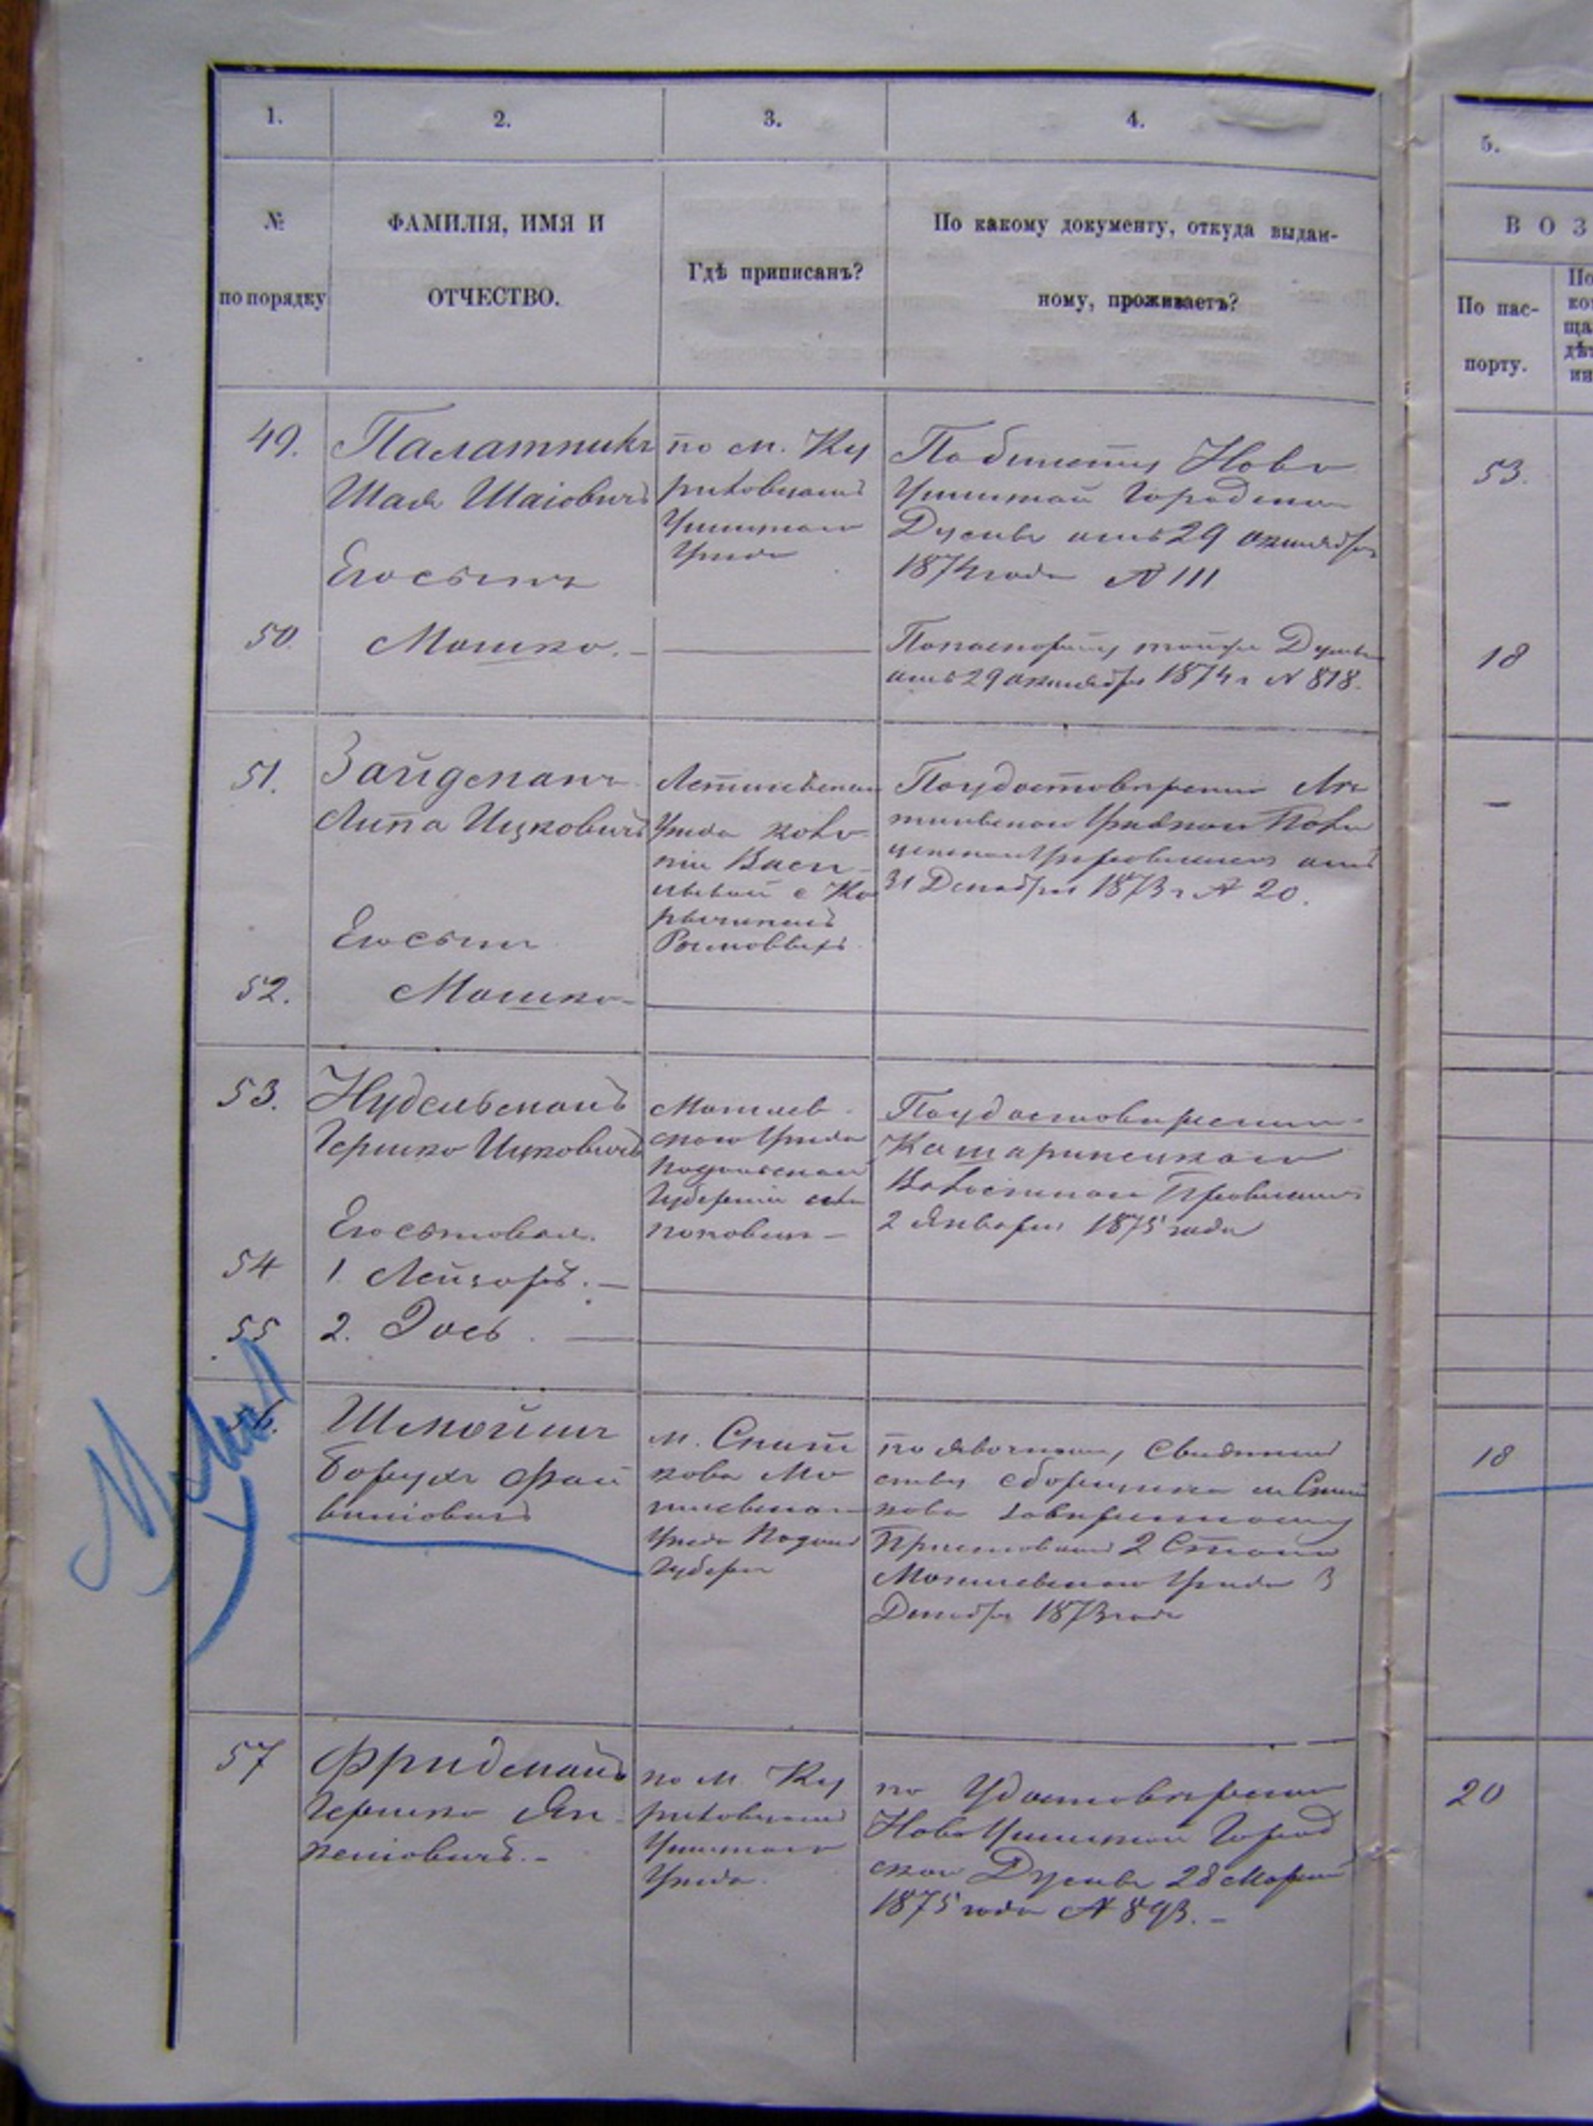 1.
2.
3.
4.
5.
№
по порядку
ФАМИЛІЯ, ИМЯ И
ОТЧЕСТВО.
Гдѣ приписанъ?
По какому документу, откуда выдан-
ному, проживаетъ?
В О З
По пас-
порту.
49.
Палатникъ
Шая Шаіовичъ
Его сынъ
по м. Ку
риловцамъ
Ушицкаго
Уѣзда
По билету Ново
Ушицкой Городской
Думы отъ 29 октября
1874 года № 111
53.
50.
Мошко. -
По паспорту тойже Думы
отъ 29 октября 1874 г № 818.
18
51.
Зайдеманъ
Липа Ицковичъ
Его сынъ
Летичевскаго
Уѣзда коло
ніи Васи
По удостовѣренію Ле
тичевскаго Уѣзднаго Поли
цейскаго Управленія отъ
31 Декабря 1873 г № 20.
—
52.
Мошко -
53.
Нудельманъ
Гершко Ицковичъ
Его сыновья.
Могилев
скаго Уѣзда
Подольской
Губерніи
По удостовѣренію
Волостнаго Правленія
2 Января 1875 года
54
1. Лейзоръ. —
55
2. Іось. —
56.
Шмойшъ
Борухъ Фай
вишовичъ
м. Снит
кова Мо
гилевскаго
Уѣзда Подол
Губерн
по явочному свидѣтель
ству сборщика м. Снит
кова завѣренному
Приставомъ 2 Стана
Могилевскаго Уѣзда 3
Декабря 1873 года
18
57
Фридманъ
Гершко Ян
келіовичъ. -
по м. Ку
риловцамъ
Ушицкаго
Уѣзда.
по Удостовѣренію
Ново Ушицкой Город
ской Думы 28 Марта
1875 года № 893. -
20